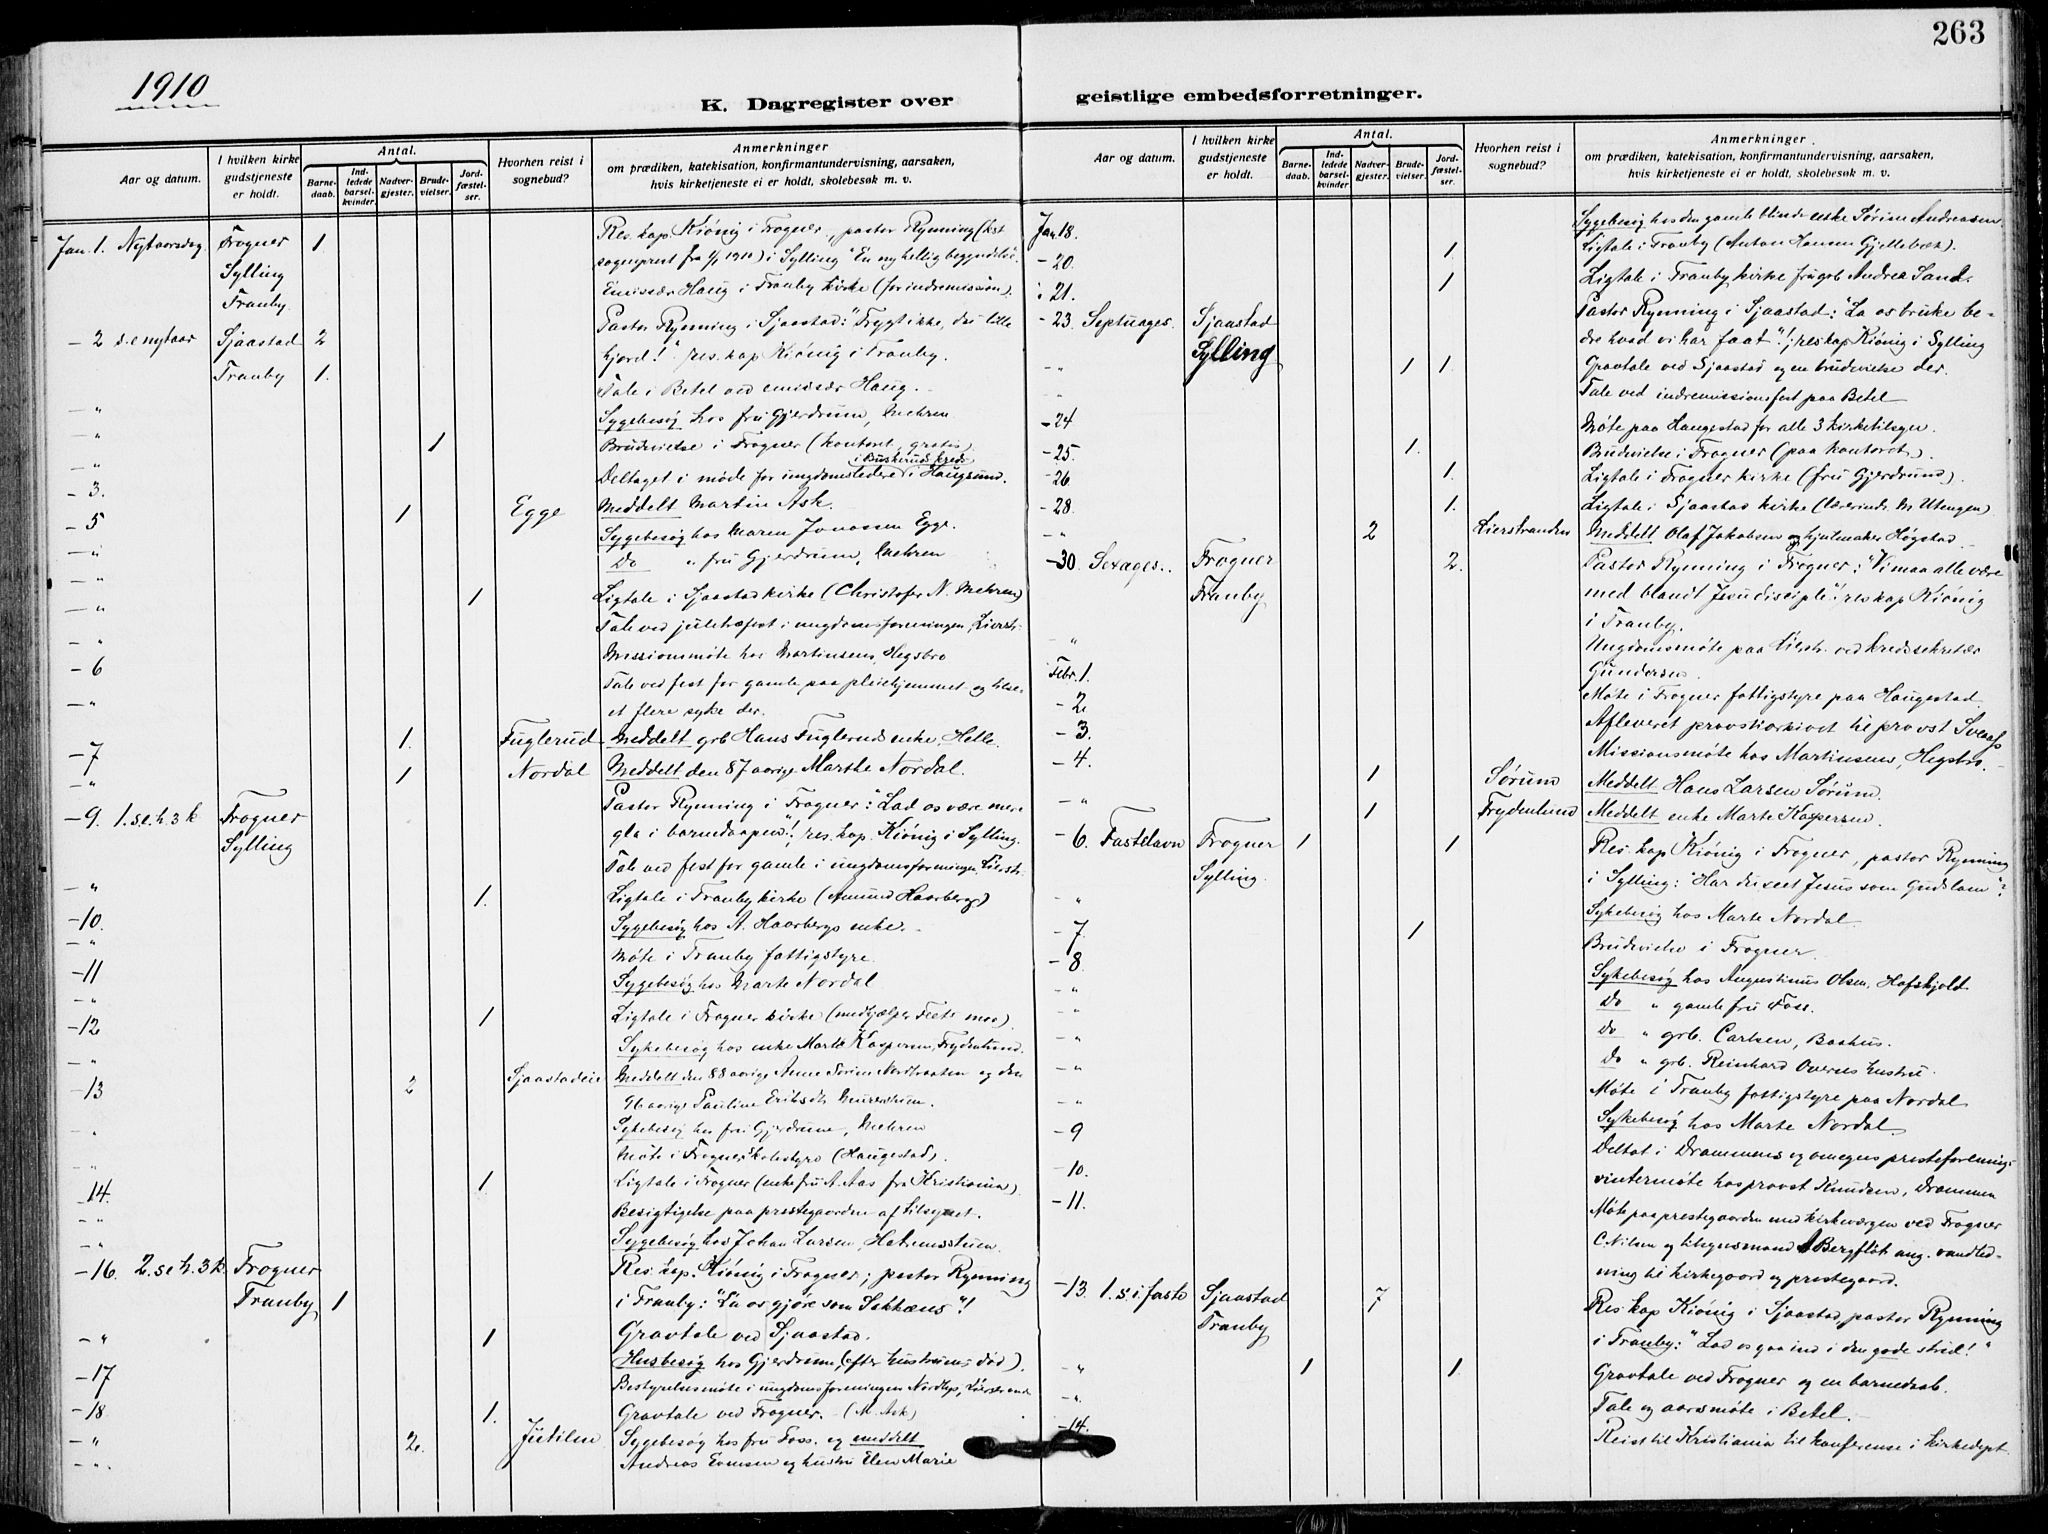 263
1910
K. Dagregister over geistlige embedsforretninger.
Aar og datum.
I hvilken kirke gudstjeneste er holdt.
Antal.
Barnedaab.
Indledede barselkvinder.
Nadvergjester.
Brudevielser.
Jordfæstelser.
Hvorhen reist i sognebud?
Anmerkninger
om prædiken, katekisation, konfirmantundervisning, aarsaken,
hvis kirketjeneste ei er holdt, skolebesøk m. v.
Jan. 1. Nytaarsdag Frogner 1. Res. kap. Kiönig i Frogner, pastor Rynning (kst
Sylling sogneprest fra 1/1 1910) i Sylling "En ny hellig begyndelse".
Tranby Emissær Haug i Tranby kirke (for indremission).
- 2 s. e nytaar Sjaastad 2 Pastor Rynning i Sjaastad: "Frygt ikke, du lille
hjord!" res. kap Kiönig i Tranby.
Tranby 1.
- " Tale i Betel ved emissær Haug.
- " Sygebesög hos fru Gjerdrum, Mehren
- " 1 Brudevielse i Frogner (kontoret, gratis)
i Buskeruds kreds
- 3. Deltaget i møde for ungdomsledere i Haugsund.
- 5 1 Egge Meddelt Martin Ask.
- " Sygebesög hos Maren Jonassen Egge.
- " Do " fru Gjerdrum, Mehren
- " 1 Ligtale i Sjaastad kirke (Christofer N. Mehren)
- " Tale ved juletræfest i ungdomsforeningen, Lierstr.
- 6 Missionsmøte hos Martinsens, Hegsbro
- " Tale ved fest for gamle paa pleiehjemmet og tilse-
et flere syke der.
- 7 1. Fuglerud Meddelt grb Hans Fugleruds enke, Helle.
- " 1 Nordal Meddelt den 87 aarige Marthe Nordal.
- 9. 1. s. e. h. 3 k Frogner Pastor Rynning i Frogner: "Lad os være mere
Sylling gla i barnedaapen"!, res. kap. Kiönig i Sylling.
- " Tale ved fest for gamle i ungdomsforeningen, Lierstr.
- 10. 1. Ligtale i Tranby kirke (Amund Haarberg)
- " Sygebesøg hos A. Haarbergs enke.
- 11 Møte i Tranby fattigstyre.
- " Sygebesøg hos Marte Nordal
- 12 1 Ligtale i Frogner kirke (medhjælper Feets mor)
- " Sykebesøg hos enke Marte Kaspersen, Frydenlund.
- 13 2 Sjaastadeie Meddelt den 88 aarige Anne Sørine Nordbraaten og den
96 aarige Pauline Eriksdtr Murerstuen.
- " Sykebesög hos fru Gjerdrum, Mehren
- " Møte i Frogner skolestyre (Haugestad).
- 14. 1 Ligtale i Frogner (enkefru A. Aas fra Kristiania)
- " Besigtigelse paa prestegaarden af tilsynet.
- " Sygebesøg hos Johan Larsen,
- 16. 2. s e h. 3 k. Frogner Res. kap. Kiönig i Frogner; pastor Rynning
Tranby 1 i Tranby: "La os gjøre som Sakkæus"!
- " 1 Gravtale ved Sjaastad.
- 17 Husbesög hos Gjerdrum (efter hustruens død).
- 18 Bestyrelsesmøte i ungdomsforeningen Nordlys,
- " 1. Gravtale ved Frogner. - (M. Ask)
- " 2. Sygebesøg hos fru Foss. og meddelt
Andreas Evensen og hustru Elen Marie
Jan. 18. Sygebesøg hos den gamle blinde enke Sørine Andreasen
- 20. 1 Ligtale i Tranby (Anton Hansen Gjellebæk).
- 21. 1 Ligtale i Tranby kirke fru grb Andrea Sand.
- 23. Septuages. Sjaastad Pastor Rynning i Sjaastad: "La os bruke be-
Sylling dre hvad vi har faat"!; res kap Kiönig i Sylling
- " 1 1 Gravtale ved Sjaastad og en brudevielse der.
- " Tale ved indremissionsfest paa Betel
- 24 Møte paa Haugestad for alle 3 kirketilsyn.
- 25. 1. Brudevielse i Frogner (paa kontoret).
- 26 1. Ligtale i Frogner kirke (fru Gjerdrum).
- 28 1. Ligtale i Sjaastad kirke (lærerinde M Utengen)
- " 2 Lierstranden Meddelt Olaf Jakobsen og hjulmaker Høgstad.
- 30. Sexages. Frogner 2. Pastor Rynning i Frogner: "Vi maa alle være
Tranby med blandt Jesu disciple"! res kap Kiönig
i Tranby.
- " Ungdomsmøte paa Lierstr. ved kredssekretær
Gundersen.
Febr. 1. Møte i Frogner fattigstyre paa Haugestad.
- 2 Afleveret provstiarkivet til provst Sveaas
- 3. Missionsmøte hos Martinsens, Hegsbro.
- 4. 1 Sørum Meddelt Hans Larsen Sørum.
- " 1 Frydenlund Meddelt enke Marte Kaspersen.
- 6. Fastelavn Frogner 1 1 Res. kap Kiönig i Frogner, pastor Rynning
Sylling. i Sylling: "Har du seet Jesus som Guds lam"?
- " Sykebesøg hos Marte Nordal
- 7. 1 Brudevielse i Frogner.
- 8 Sykebesøg hos Augustinus Olsen, Hafskjold
- " Do " gamle fru Foss.
- " Do " grb. Carlsen, Baahus.
- " Do " grb. Reinhard Overns hustru.
- " Møte i Tranby fattigstyre paa Nordal
- 9 Sykebesøg hos Marte Nordal.
- 10. Deltat i Drammens og omegns presteforenings
vintermøte hos provst Knudsen, Drammen
- 11. Møte paa prestegaarden med kirkeværgen ved Frogner
C. Nilsen og tilsynsmand A Bergflöt ang. vandled-
ning til kirkegaard og prestegaard.
- 13. 1. s. i faste Sjaastad 7 Res. kap Kiönig i Sjaastad, pastor Rynning
Tranby i Tranby: "Lad os gaa ind i den gode strid!"
- " 1 1 Gravtale ved Frogner og en barnedaab.
- " Tale og aarsmøte i Betel.
- 14. Reist til Kristiania til konferense i kirkedept.
Jutilen